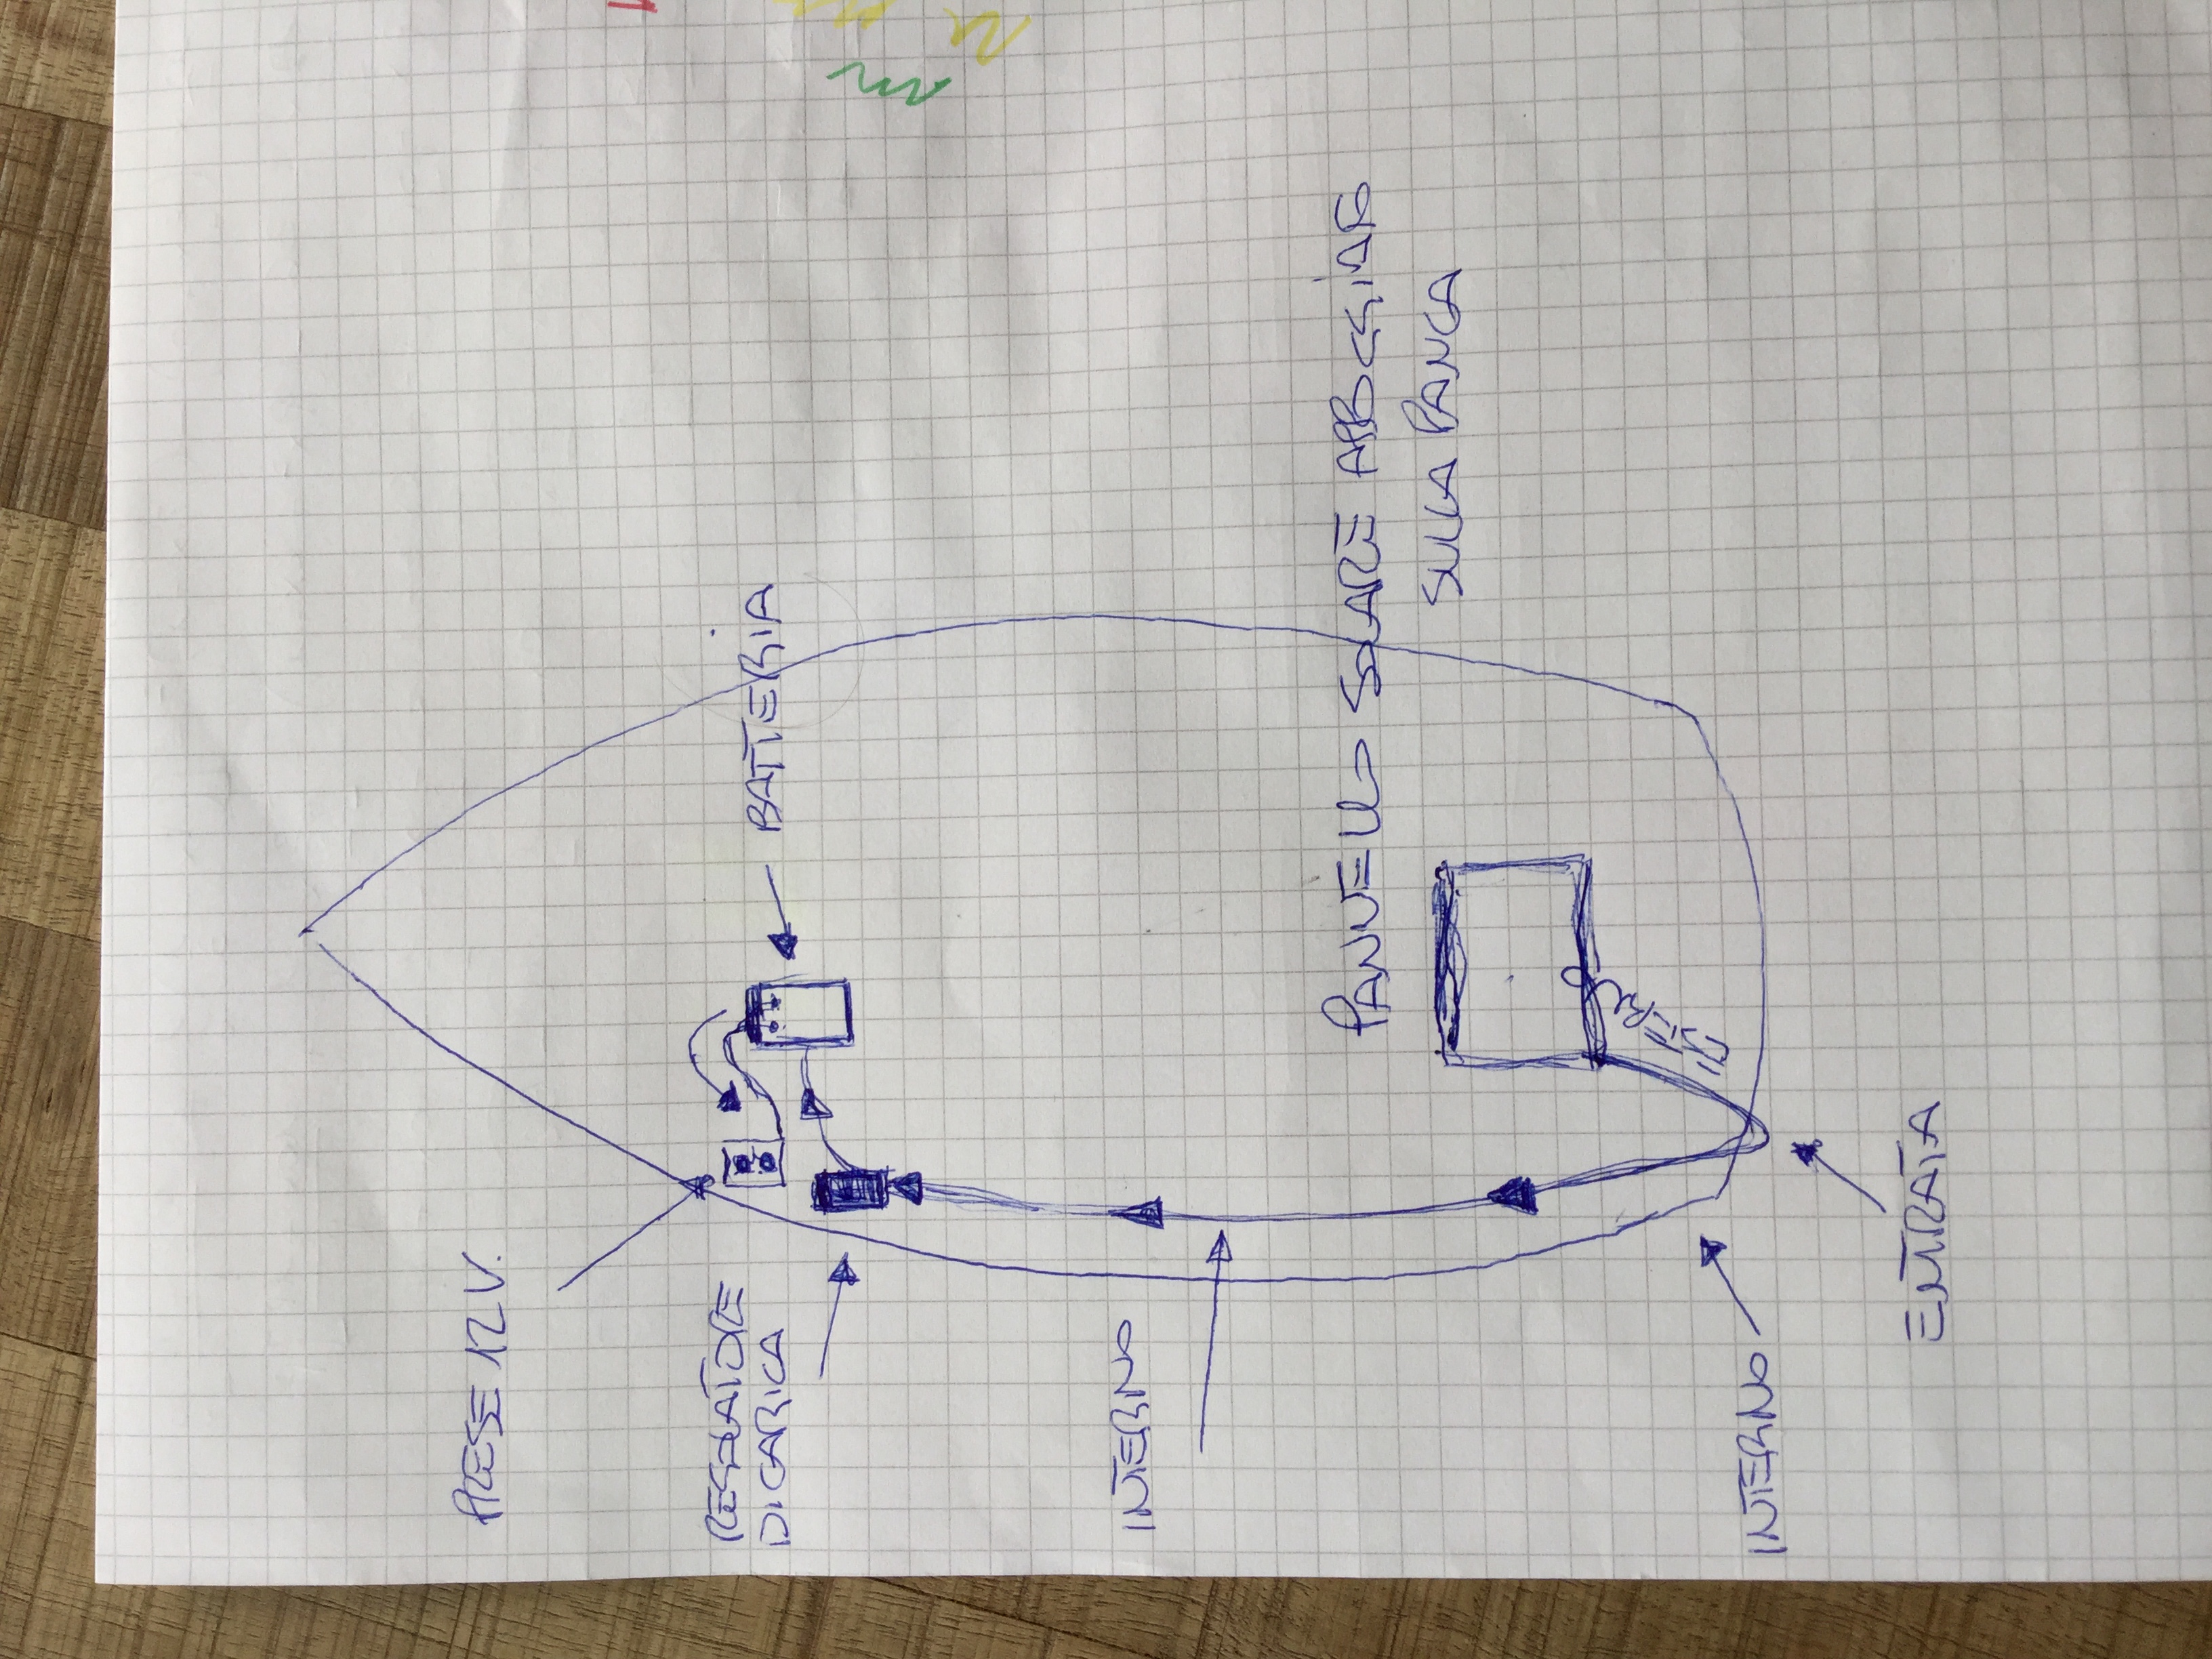 PRESE 12 V.
BATTERIA
REGOLATORE
DI CARICA
INTERNO
PANNELLO SOLARE APPOGGIAR
SULLA PANCA
INTERNO
ENTRATA